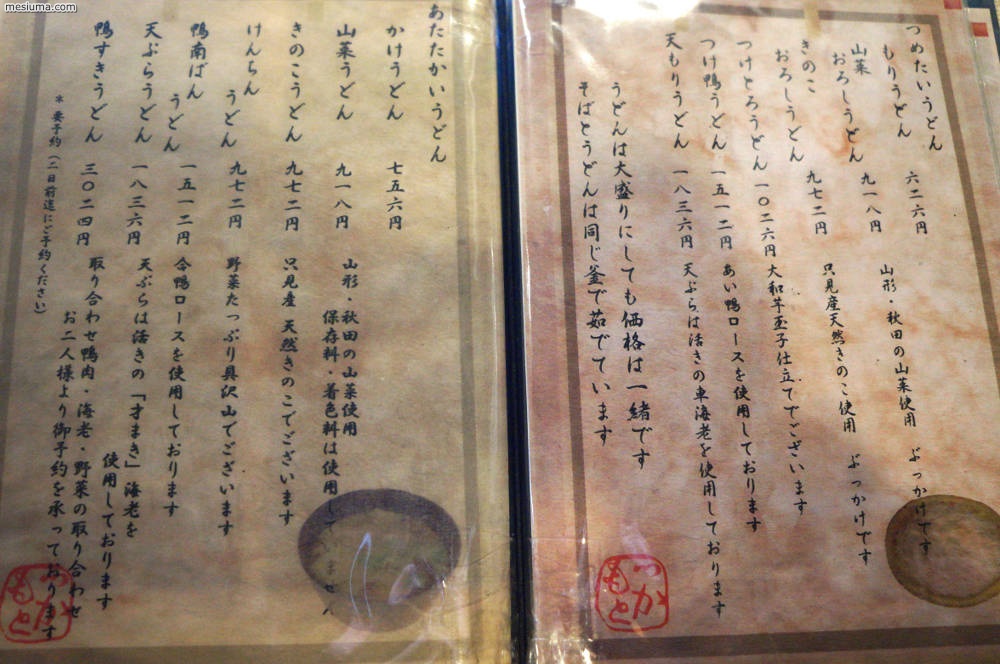 mesiuma.com
つめたいうどん
もりうどん 六二六円
山菜
おろしうどん 九一八円 山形・秋田の山菜使用 ぶっかけです
きのこ
おろしうどん 九七二円 只見産天然きのこ使用 ぶっかけです
つけとろうどん 一〇二六円 大和芋玉子仕立てでございます
つけ鴨うどん 一五一二円 あい鴨ロースを使用しております
天もりうどん 一八三六円 天ぷらは活きの車海老を使用しております
うどんは大盛りにしても価格は一緒です
そばとうどんは同じ釜で茹でています
つかもと
あたたかいうどん
かけうどん 七五六円
山菜うどん 九一八円 山形・秋田の山菜使用
保存料・着色料は使用して ません
きのこうどん 九七二円 只見産 天然きのこでございます
けんちん
うどん 九七二円 野菜たっぷり具沢山でございます
鴨南ばん
うどん 一五一二円 合鴨ロースを使用しております
天ぷらうどん 一八三六円 天ぷらは活きの「才まき」海老を
使用しております
鴨すきうどん 三〇二四円 取り合わせ鴨肉・海老・野菜の取り合わせ
お二人様より御予約を承っております
＊要予約（二日前迄にご予約ください）
つかもと